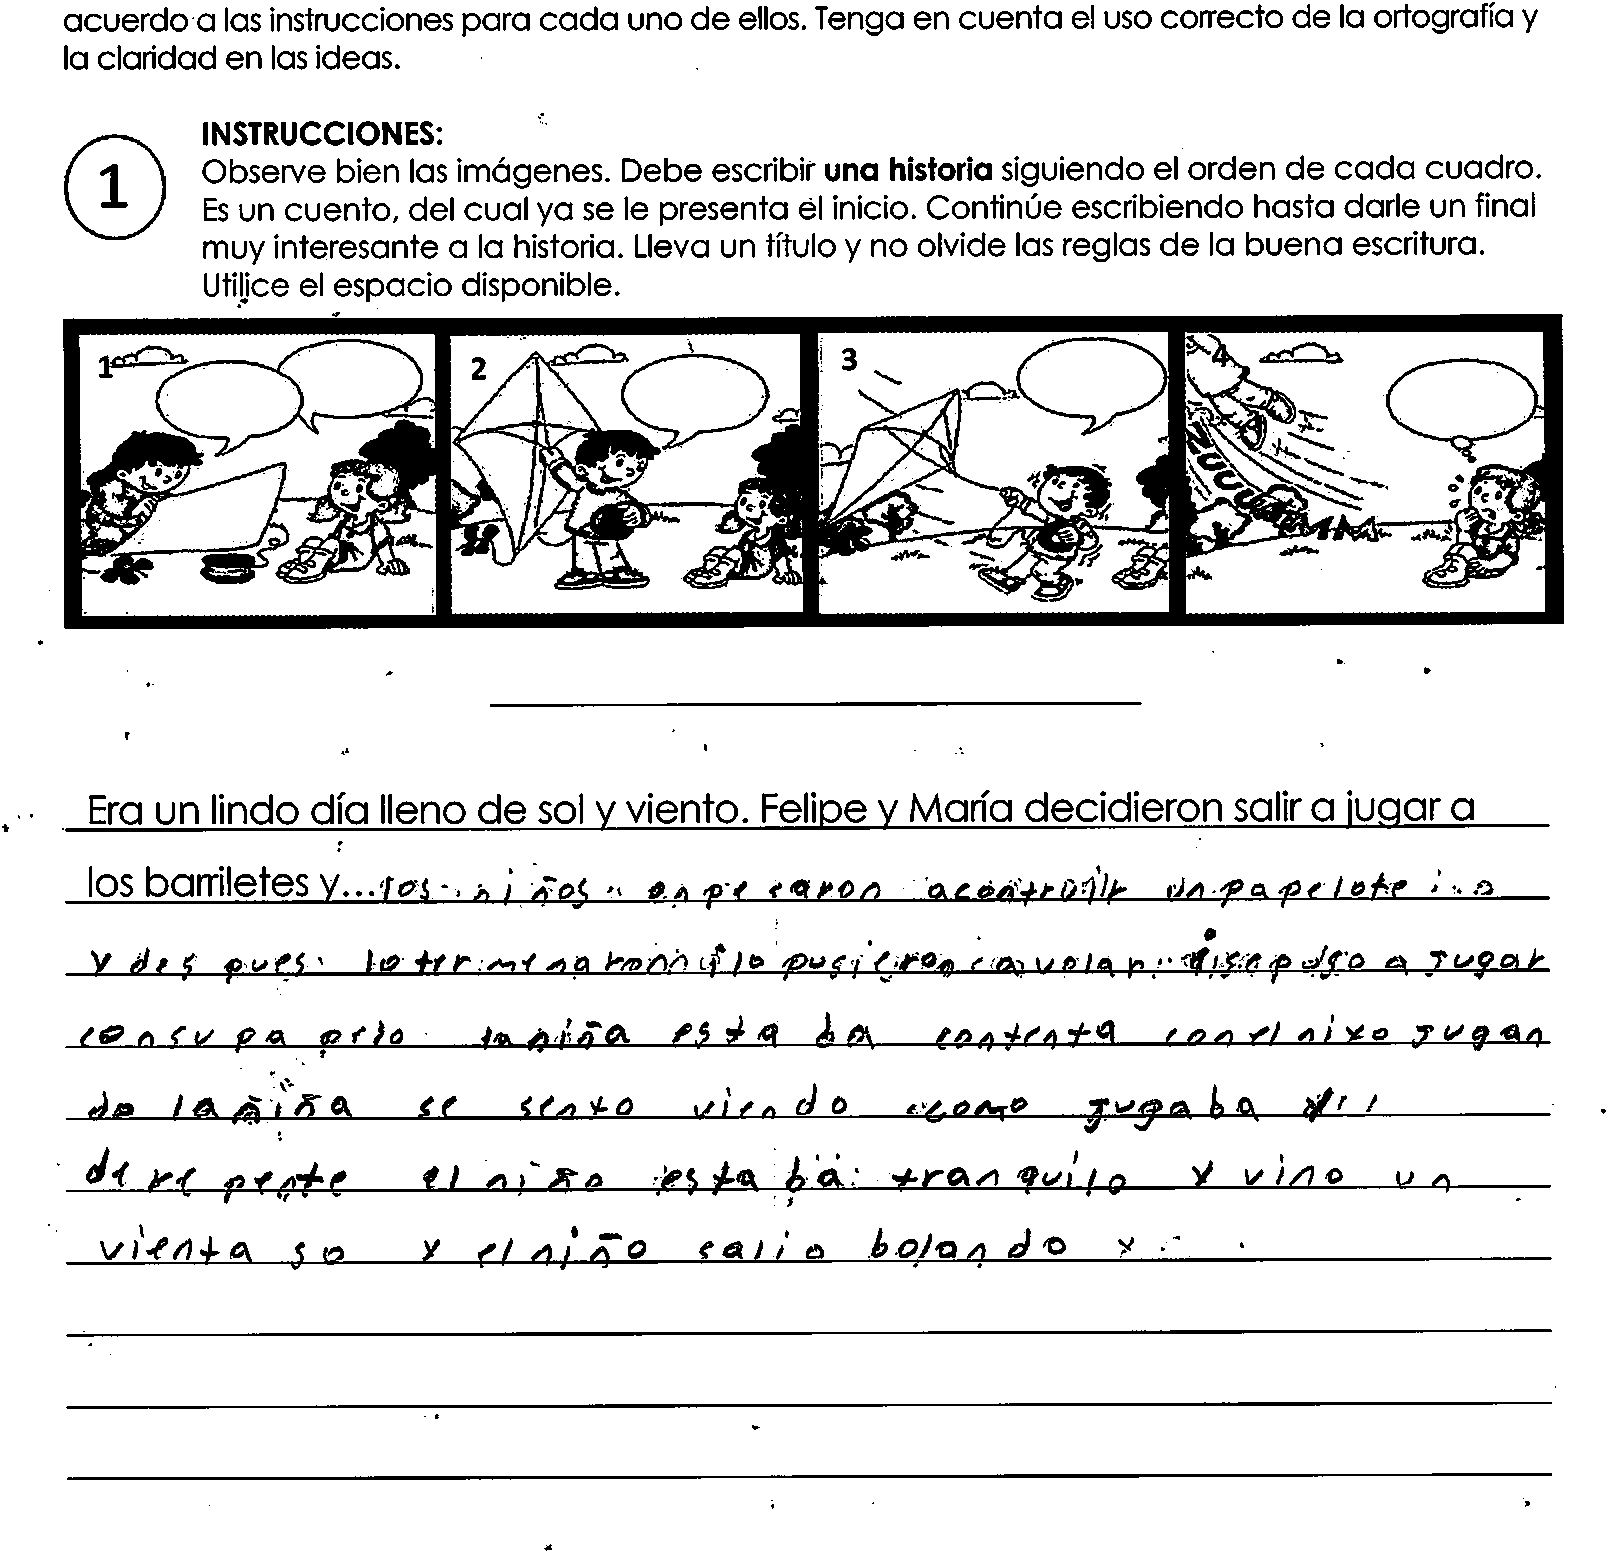 acuerdo a las instrucciones para cada uno de ellos. Tenga en cuenta el uso correcto de la ortografía y
la claridad en las ideas.
1
INSTRUCCIONES:
Observe bien las imágenes. Debe escribir una historia siguiendo el orden de cada cuadro.
Es un cuento, del cual ya se le presenta el inicio. Continúe escribiendo hasta darle un final
muy interesante a la historia. Lleva un título y no olvide las reglas de la buena escritura.
Utilice el espacio disponible.
1 2 3 4
Era un lindo día lleno de sol y viento. Felipe y María decidieron salir a jugar a
los barriletes y... los niños enpesaron acontruiir un papelote
y des pues lo termenaron y lo pusieron a volar isepuso a Jugar
consu papelo la niña esta ba contenta con el niño Jugan
do la niña se sento viendo como Jugaba
de re pente el niño esta ba tranquilo y vino un
vienta so y el niño salio bolando